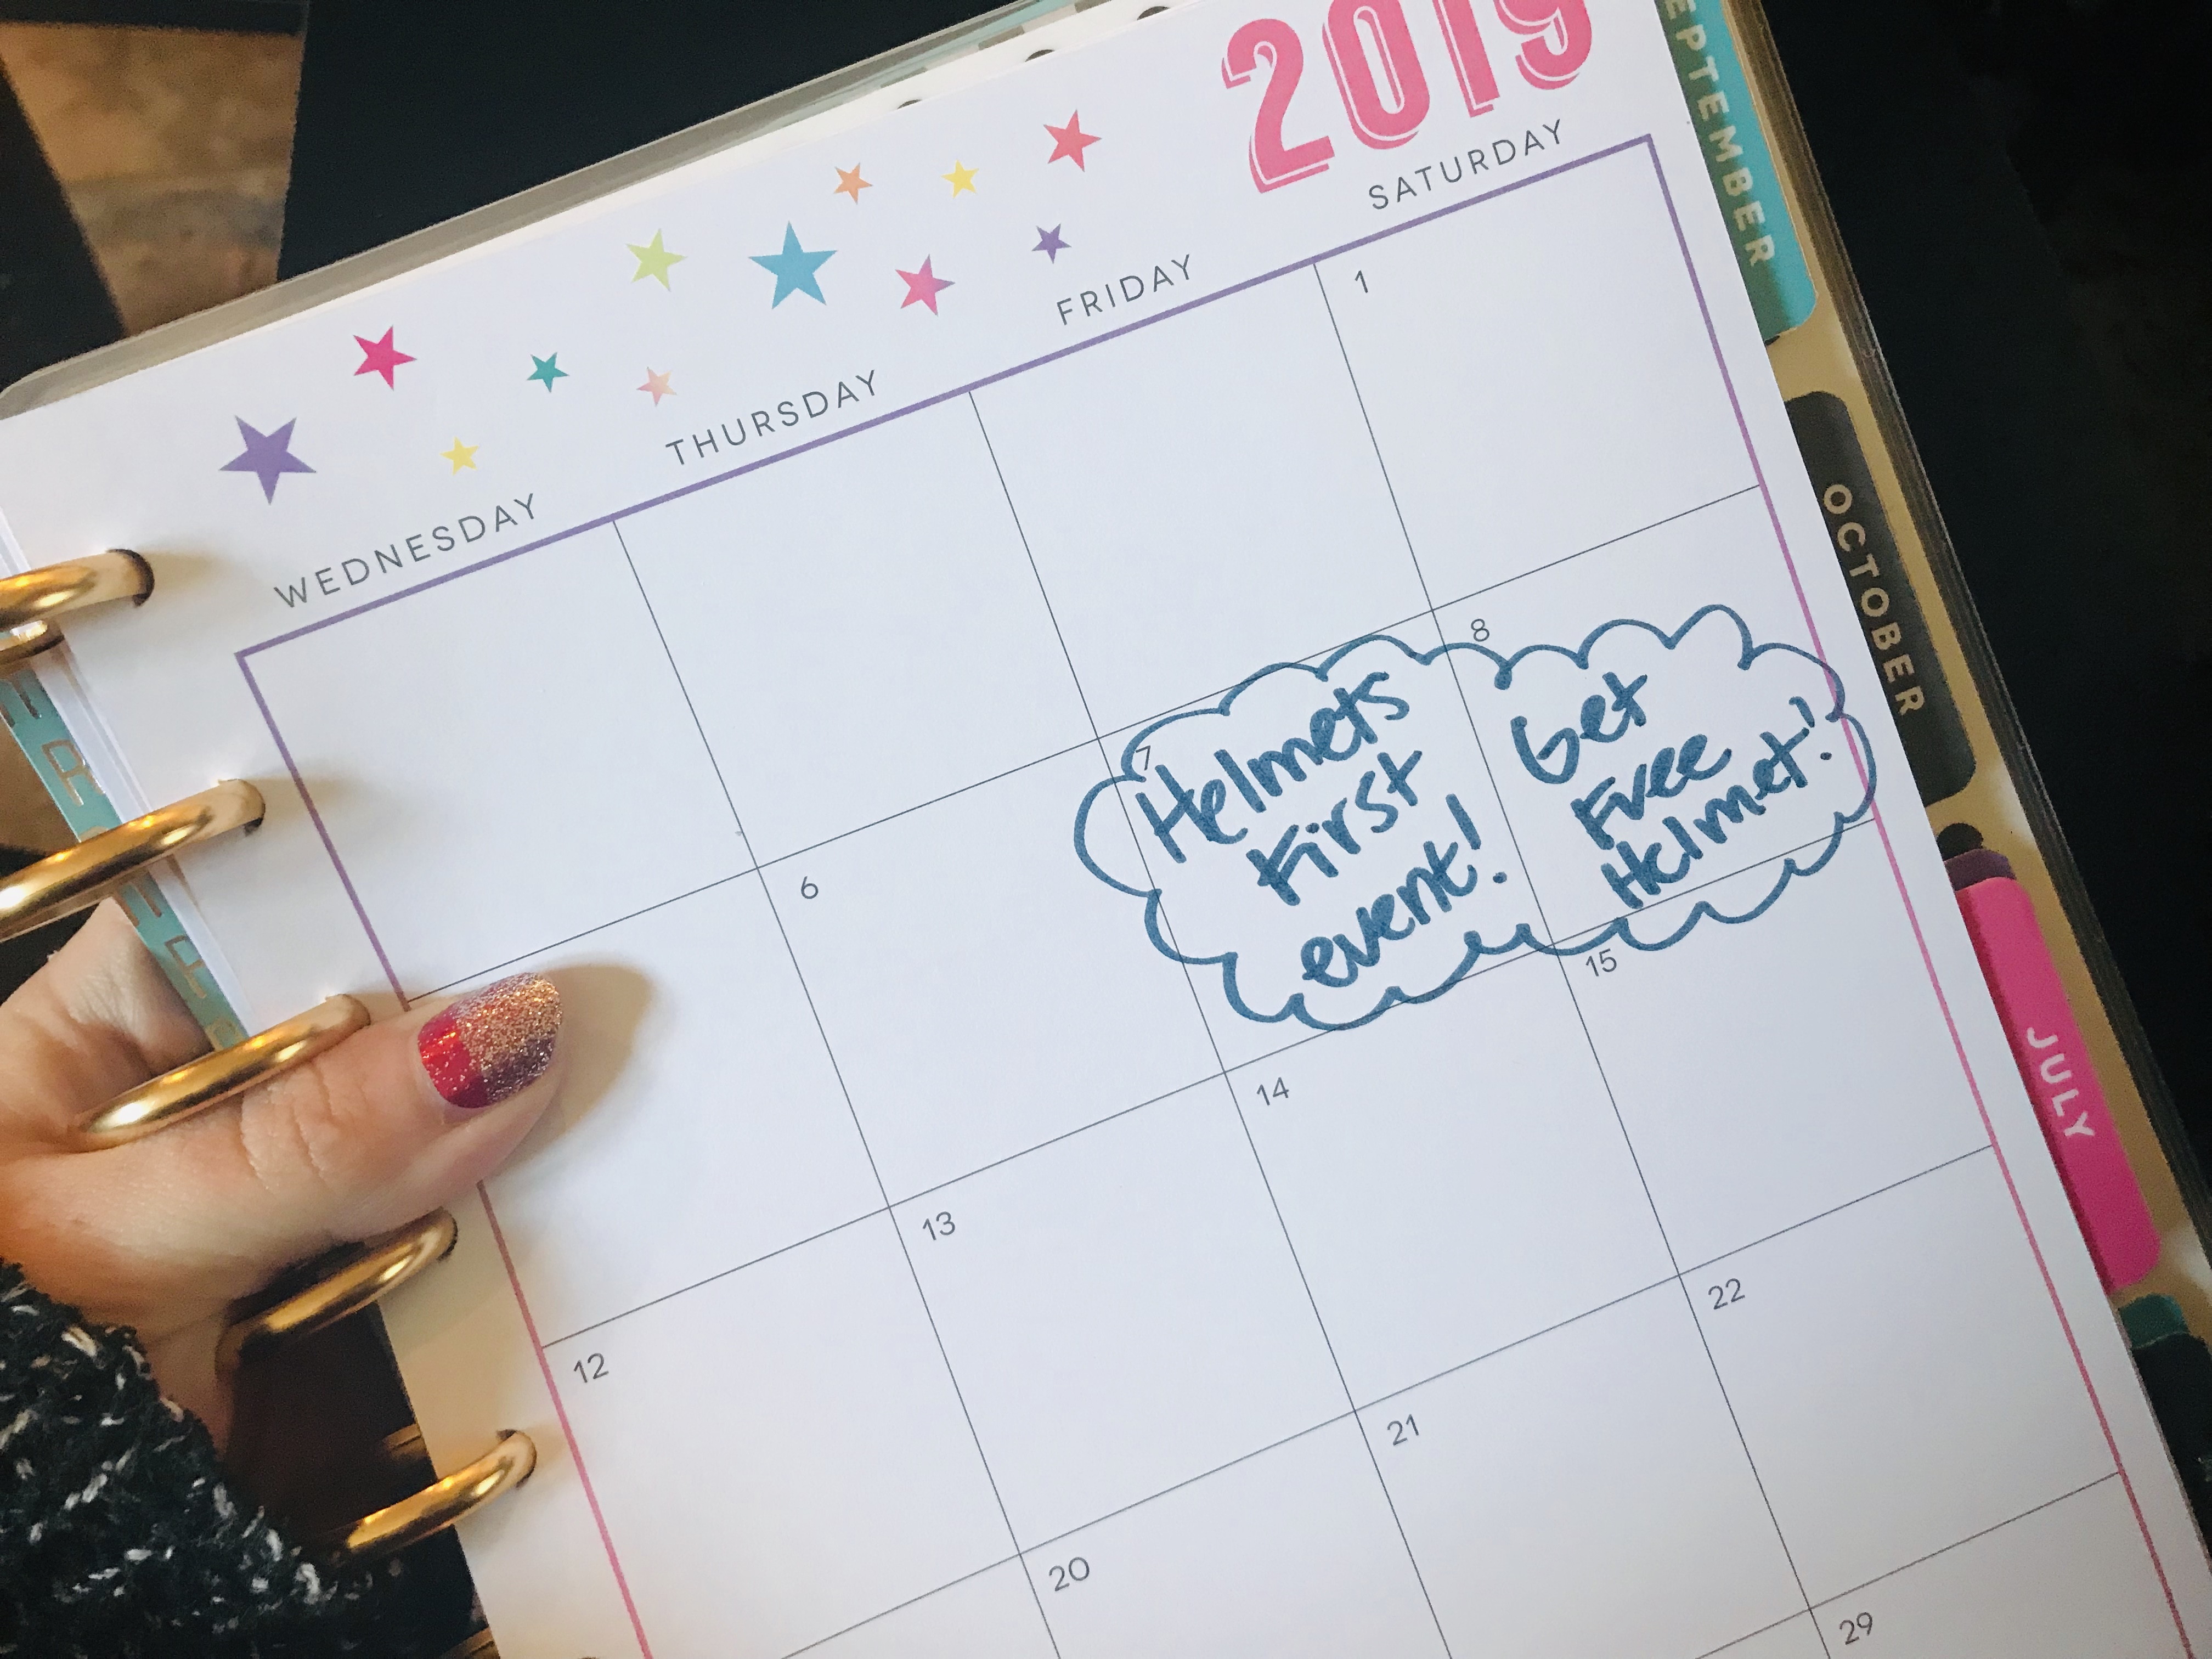 2019
WEDNESDAY THURSDAY FRIDAY SATURDAY
1
6 7 8
Helmets
First
event!
Get
Free
Helmet!
12 13 14 15
20 21 22
29
EPTEMBER
OCTOBER
JULY